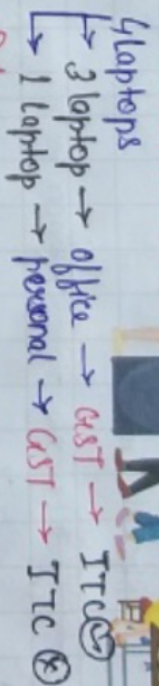 4laptops
↳ 3 laptop → office → GST → ITC ✓
↳ 1 laptop → personal → GST → ITC ✗